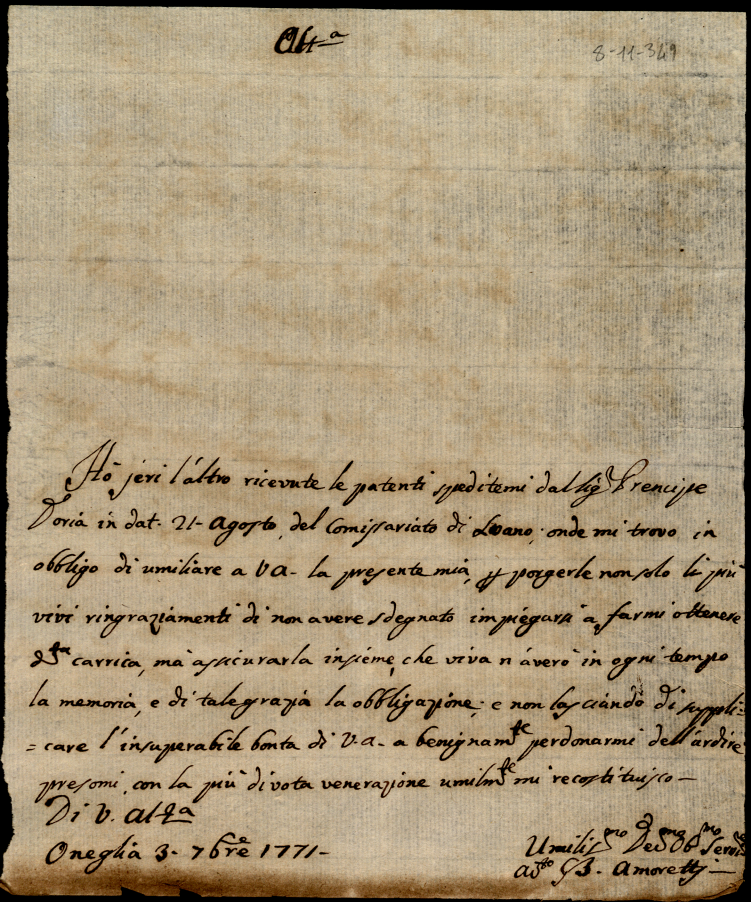 Alt.ª
8-11-349
Hò jeri l'altro ricevute le patenti speditemi dal Sig.r Prencipe
Doria in dat.ª 21- Agosto, del Comissariato di Loano; onde mi trovo in
obbligo di umiliare a V.A- la presente mia, porgerle non solo li più
vivi ringraziamenti di non avere sdegnato impiegarsi a farmi ottenere
carrica, mà assicurarla insieme, che viva n'averò in ogni tempo
la memoria, e di tale grazia la obbligazione; e non lasciando di suppli=
=care l'insuperabile bontà di V.A- a benignam.te perdonarmi dell'ardire
presomi, con la più divota venerazione umilm.te mi recostituisco-
Di V. Alt.ª
Oneglia 3- 7bre 1771-
Umilis.mo Dev.mo Ob.mo Serv.e
GB. Amoretti-